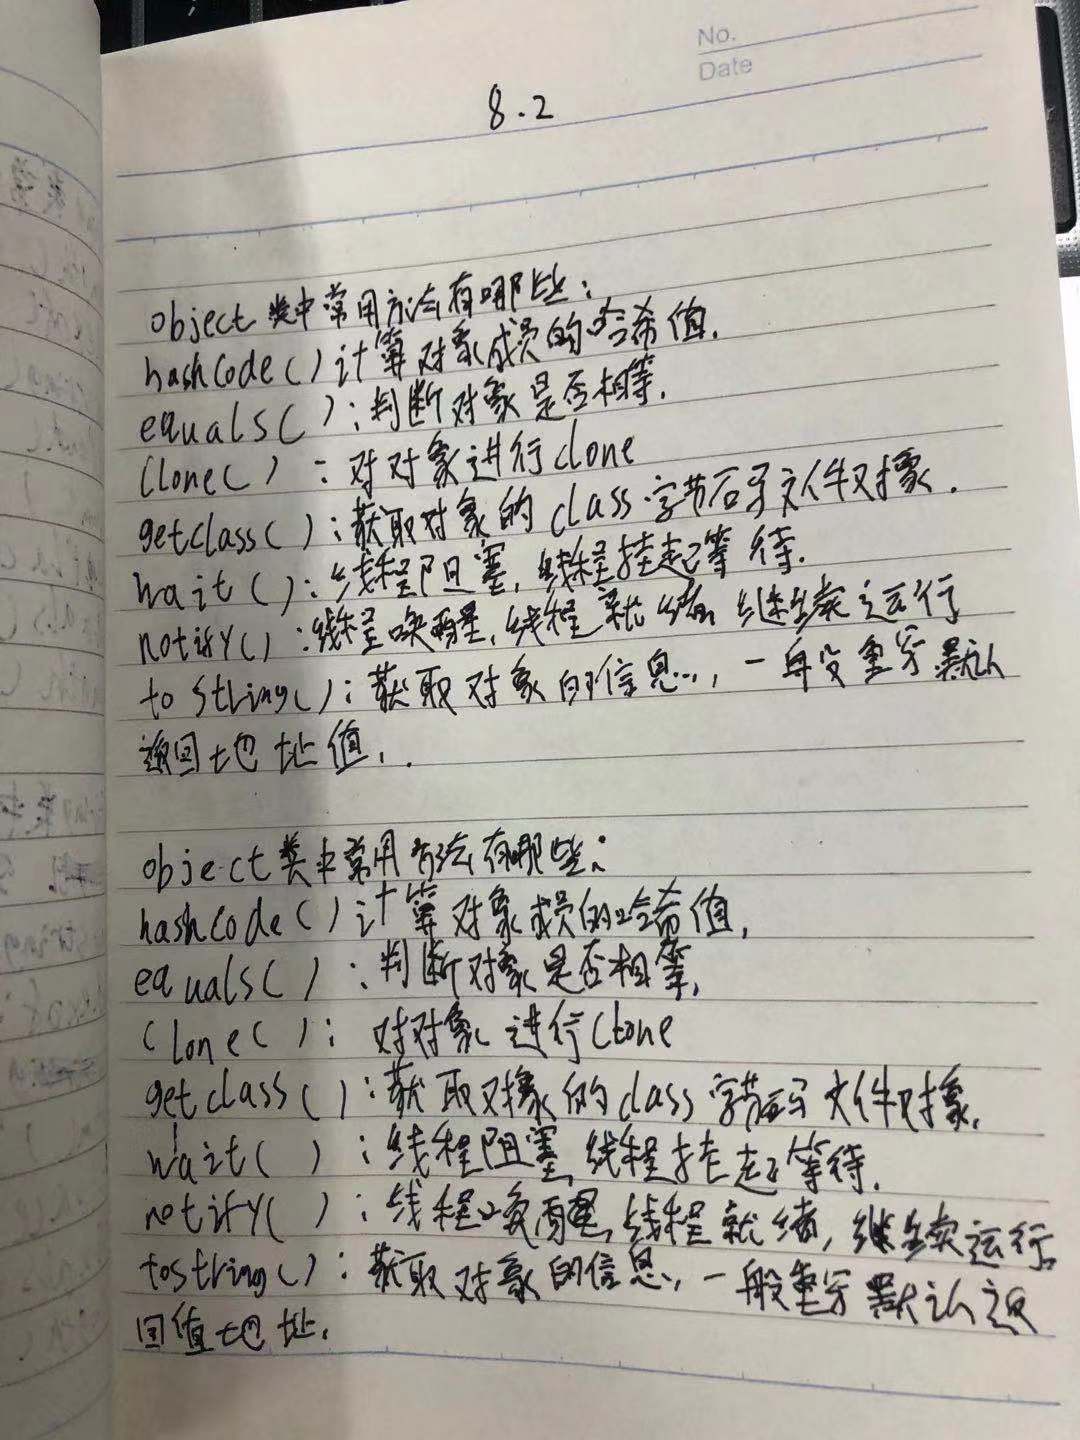 No.
Date
8.2
object类中常用方法有哪些:
hashCode()计算对象成员的哈希值.
equals():判断对象是否相等.
Clone():对对象进行clone
getclass():获取对象的class字节码文件对象.
wait():线程阻塞,线程挂起等待.
notify():线程唤醒,线程就绪 继续运行
to string():获取对象的信息,一般重写默认
返回地址值.
object类中常用方法有哪些:
hashCode()计算对象成员的哈希值,
equals():判断对象是否相等,
Clone():对对象进行Clone
getclass():获取对象的class字节码文件对象.
wait():线程阻塞,线程挂起等待.
notify():线程唤醒,线程就绪,继续运行
tostring():获取对象的信息,一般重写默认返
回值地址.